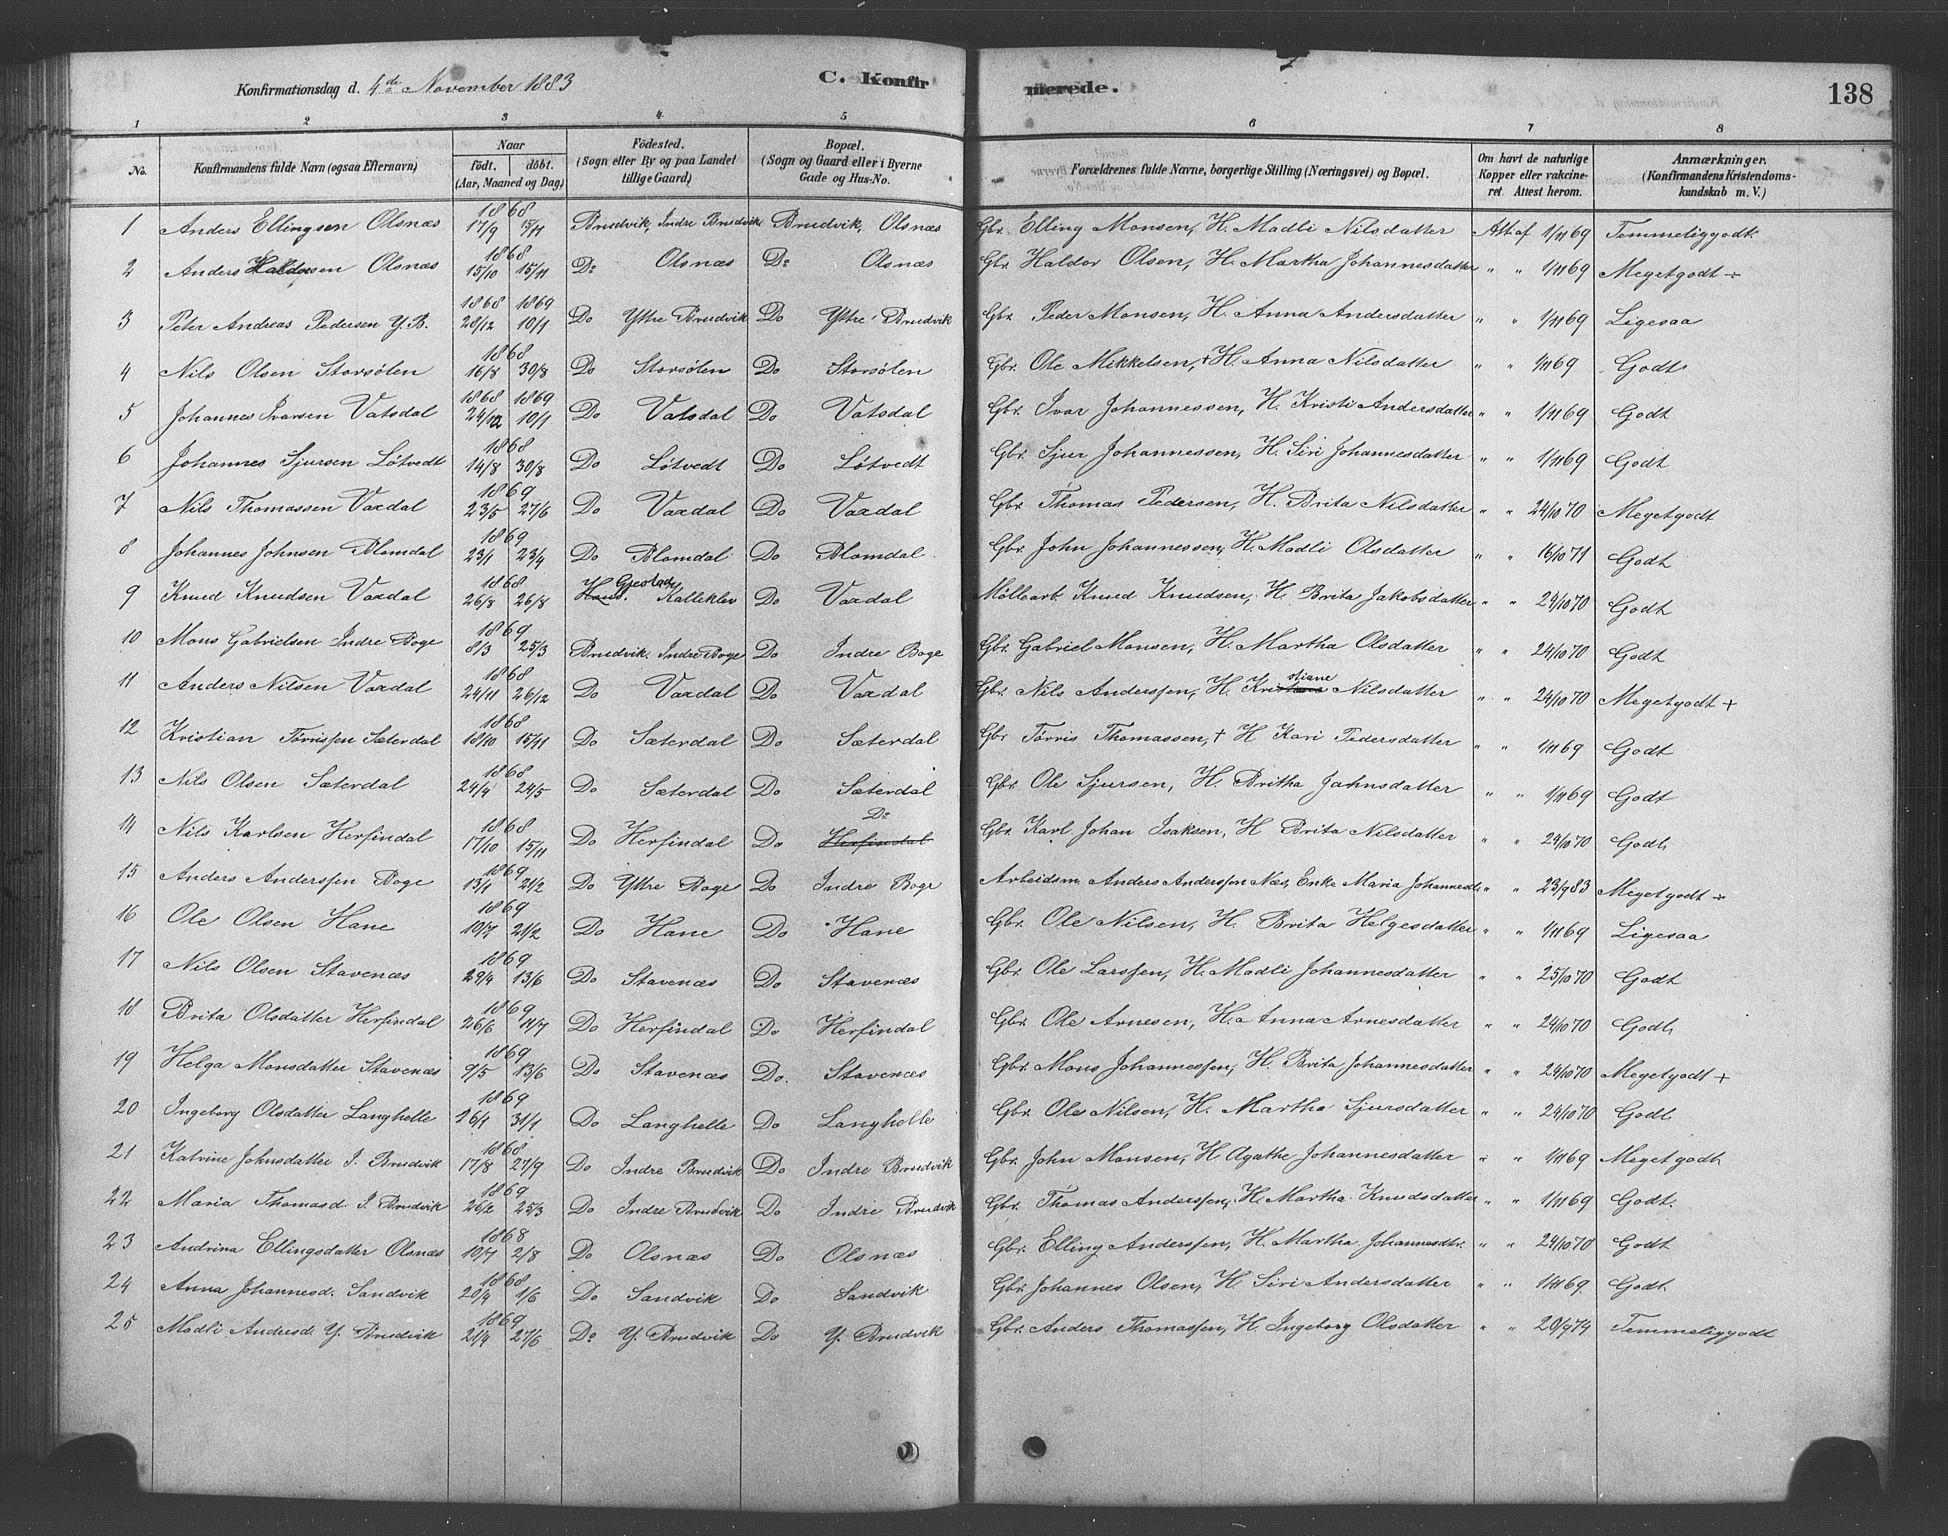 Konfirmationsdag d. 4de November 1883 C. Konfirmerede. 138
1 2 3 4 5 6 7 8
No. Konfirmandens fulde Navn (ogsaa Efternavn) Naar födt. döbt. (Aar, Maaned og Dag) Födested. (Sogn eller By og paa Landet tillige Gaard.) Bopæl. (Sogn og Gaard eller i Byerne Gade og Hus-No. Forældrenes fulde Navne, borgerlige Stilling (Næringsvei) og Bopæl. Om havt de naturlige Kopper eller vakcineret Attest herom. Anmærkninger. (Konfirmandens Kristendomskundskab m. V.)
1 Anders Ellingsen Olsnæs 1868 17/9 15/11 Brudvik, Indre Brudvik Brudvik, Olsnæs Gbr. Elling Monsen, H. Madli Nilsdatter Att. af 1/11 69 Temmeliggodt.
2 Anders Haldorsen Olsnæs 1868 15/10 15/11 Do Olsnæs Do Olsnæs Gbr Haldor Olsen, H. Martha Johannesdatter " " 1/11 69 Megetgodt +
3 Peter Andreas Pedersen Y. B. 1868 1869 28/12 10/1 Do Yttre Brudvik Do Yttre Brudvik Gbr. Peder Monsen, H. Anna Andersdatter " " 1/11 69 Ligesaa
4 Nils Olsen Storsölen 1868 16/8 30/8 Do Storsölen Do Storsölen Gbr. Ole Mikkelsen, + H. Anna Nilsdatter " " 1/11 69 Godt
5 Johannes Ivarsen Vatsdal 1868 1869 24/12 10/1 Do Vatsdal Do Vatsdal Gbr. Ivar Johannessen, H. Kristi Andersdatter " " 1/11 69 Godt
6 Johannes Sjursen Lötvedt 1868 14/8 30/8 Do Lötvedt Do Lötvedt Gbr. Sjur Johannessen, H. Siri Johannesdatter " " 1/11 69 Godt
7 Nils Thomassen Vaxdal 1869 23/5 27/6 Do Vaxdal Do Vaxdal Gbr. Thomas Pedersen, H. Brita Nilsdatter " " 24/10 70 Megetgodt
8 Johannes Johnsen Blomdal 1869 23/1 23/4 Do Blomdal Do Blomdal Gbr. John Johannessen, H. Madli Olsdatter " " 16/10 71 Godt
9 Knud Knudsen Vaxdal 1868 26/8 26/8 Kalleklev Do Vaxdal Möllearb. Knud Knudsen, H. Brita Jakobsdatter " " 24/10 70 Godt
10 Mons Gabrielsen Indre Boge 1869 8/3 25/3 Brudvik. Indre Boge Do Indre Boge Gbr. Gabriel Monsen, H. Martha Olsdatter " " 24/10 70 Godt
11 Anders Nilsen Vaxdal 1868 24/11 26/12 Do Vaxdal Do Vaxdal Gbr. Nils Anderssen, H. Kristiane Nilsdatter " " 24/10 70 Megetgodt +
12 Kristian Törrissen Sæterdal 1868 18/10 15/11 Do Sæterdal Do Sæterdal Gbr Törris Thomassen, + H Kari Pedersdatter " " 1/11 69 Godt
13 Nils Olsen Sæterdal 1868 24/4 24/5 Do Sæterdal Do Sæterdal Gbr. Ole Sjursen, H. Britha Jahnsdatter " " 1/11 69 Godt
14 Nils Karlsen Herfindal 1868 17/10 15/11 Do Herfindal Do Herfindal Do Gbr. Karl Johan Isaksen, H Brita Nilsdatter " " 24/10 70 Godt
15 Anders Anderssen Boge 1869 13/1 21/2 Do Yttre Boge Do Indre Boge Arbeidsm. Anders Anderssen Næs, Enke Maria Johannesdt. " " 23/9 83 Megetgodt +
16 Ole Olsen Hane 1869 10/7 21/2 Do Hane Do Hane Gbr. Ole Nilsen, H. Brita Helgesdatter " " 1/11 69 Ligesaa
17 Nils Olsen Stavenæs 1869 29/4 13/6 Do Stavenæs Do Stavenæs Gbr. Ole Larssen, H. Madli Johannesdatter " " 25/10 70 Godt
18 Brita Olsdatter Herfindal 1869 26/6 11/7 Do Herfindal Do Herfindal Gbr. Ole Arnesen, H. Anna Arnesdatter " " 24/10 70 Godt
19 Helga Monsdatter Stavenæs 1869 9/5 13/6 Do Stavenæs Do. Stavenæs Gbr. Mons Johannessen, H. Brita Johannesdatter " " 24/10 70 Megetgodt +
20 Ingeborg Olsdatter Langhelle 1869 26/1 31/1 Do Langhelle Do Langhelle Gbr. Ole Nilsen, H. Martha Sjursdatter " " 24/10 70 Godt
21 Katrine Johnsdatter I. Brudvik 1868 17/8 27/9 Do Indre Brudvik Do Indre Brudvik Gbr. John Monsen, H. Agathe Johannesdatter " " 1/11 69 Megetgodt
22 Maria Thomasd. I. Brudvik 1869 26/2 25/3 Do Indre Brudvik Do Indre Brudvik Gbr. Thomas Anderssen, H. Martha Knudsdatter " " 1/11 69 Godt.
23 Andrina Ellingsdatter Olsnæs 1868 10/7 2/8 Do Olsnæs Do Olsnæs Gbr. Elling Anderssen, H. Martha Johannesdtr. " " 24/10 70 Godt
24 Anna Johannesd. Sandvik 1868 20/4 1/6 Do Sandvik Do Sandvik Gbr. Johannes Olsen, H. Siri Andersdatter " " 1/11 69 Godt.
25 Madli Andersd. Y. Brudvik 1869 21/4 27/6 Do Y. Brudvik Do Y. Brudvik Gbr. Anders Thomassen, H. Ingeborg Olsdatter " " 20/9 74 Temmeliggodt